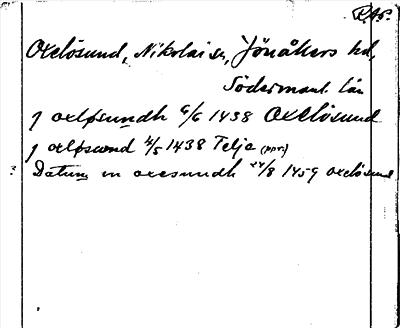 RAp.
Oxelösund, Nikolai sn, Jönåkers hd,
Södermanl. län
J oxløsundh 6/6 1438 Oxelösund
J oxløsund 4/5 1438 Telja
Datum in oxesundh 24/8 1459 oxelösund